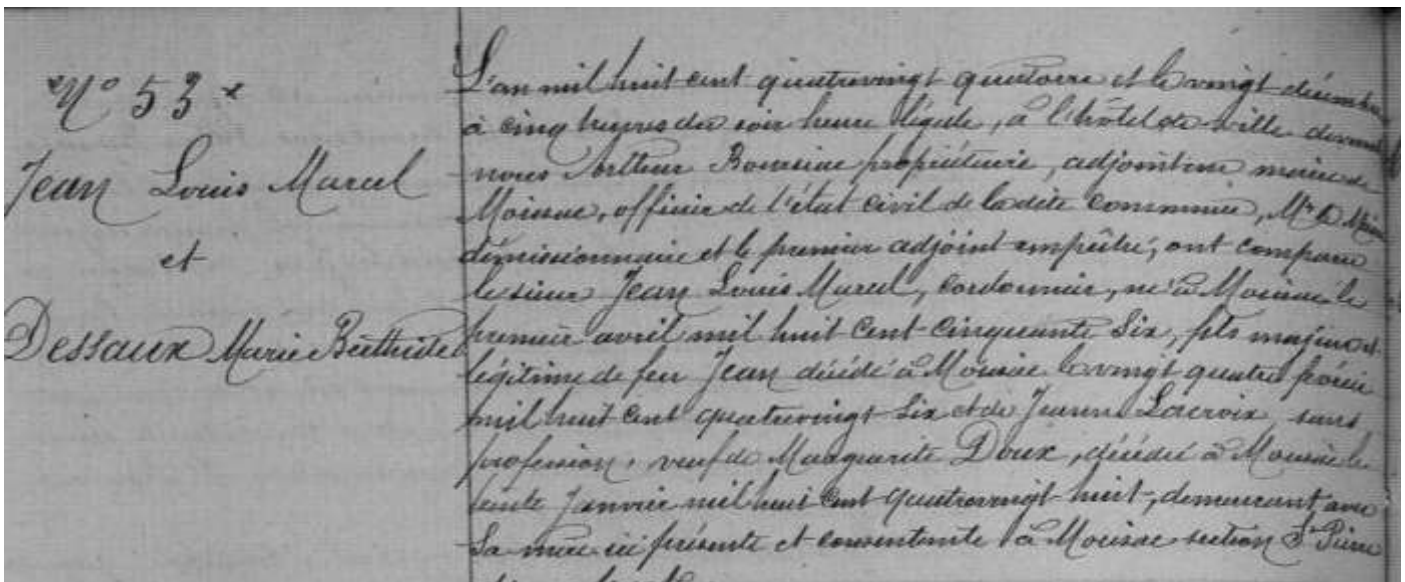 N° 53
Jean Louis Marcel
et
Dessaux Marie Berthilde
L'an mil huit cent quatrevingt quatorze et le vingt décembre
à cinq heures du soir heure légale, à l'hôtel de ville devant
nous Arthur Boursiac propriétaire, adjoint au maire de
Moissac, officier de l'état civil de la dite commune, Mr le Maire
démissionnaire et le premier adjoint empêché, ont comparu
le sieur Jean Louis Marcel, cordonnier, né à Moissac le
premier avril mil huit cent cinquante six, fils majeur et
légitime de feu Jean décédé à Moissac le vingt quatre février
mil huit cent quatrevingt six et de Jeanne Lacroix, sans
profession, veuf de Marguerite Doux, décédée à Moissac le
trente Janvier mil huit cent quatrevingt huit, demeurant avec
Sa mère ici présente et consentante à Moissac section St Pierre